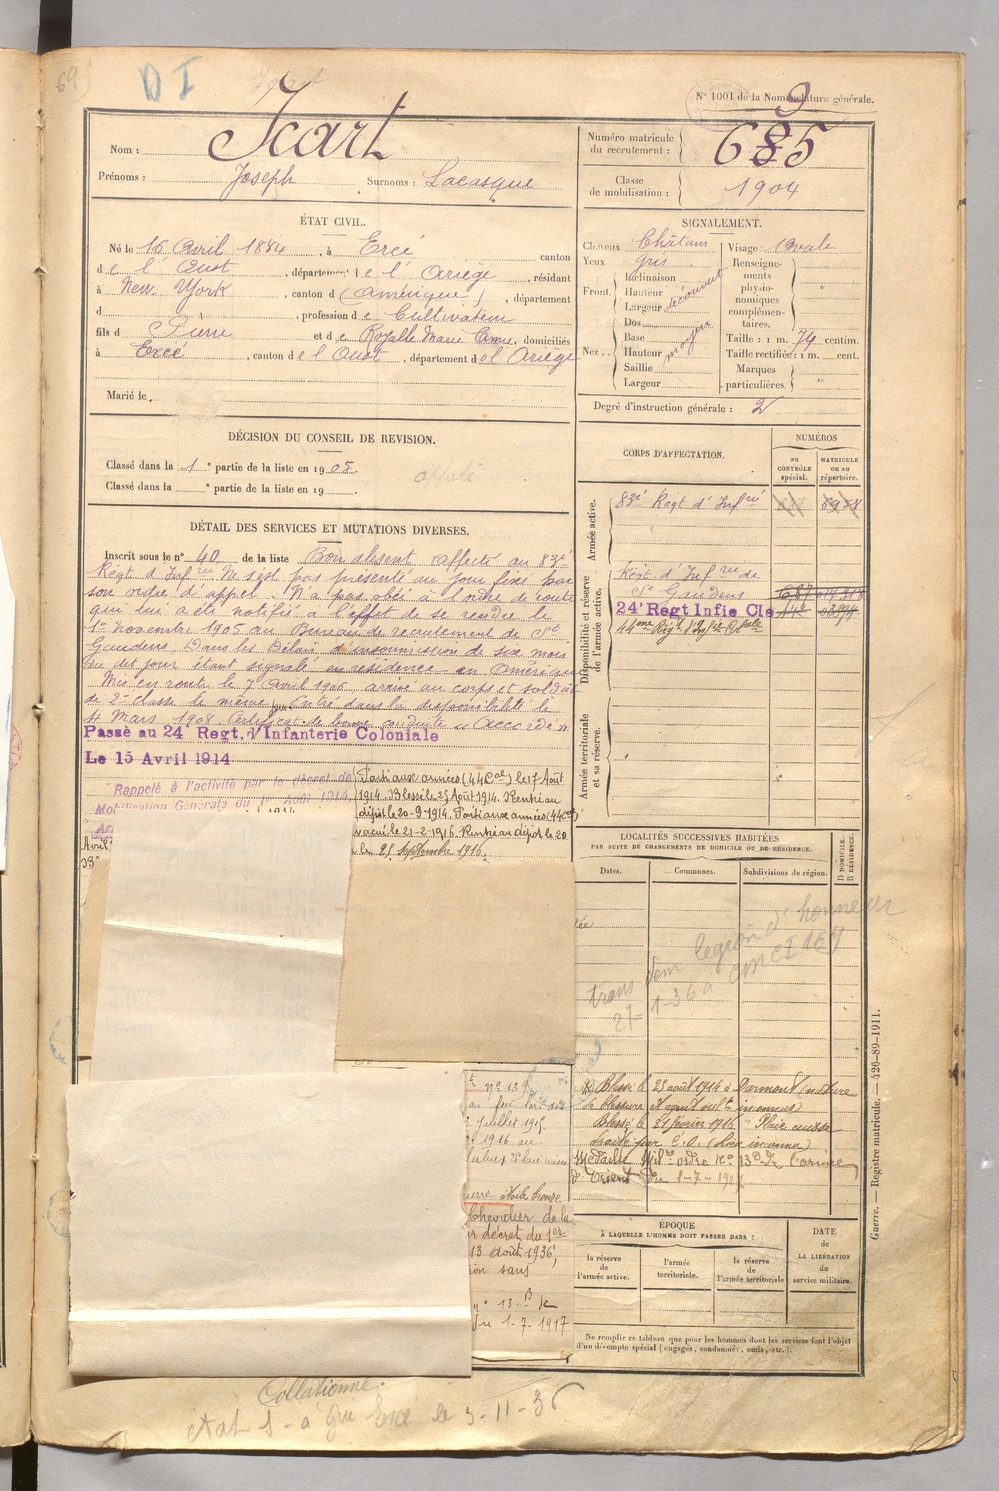 D I
N° 1001 de la Nomenclature générale.
Nom : Icart
Prénoms : Joseph Surnoms : Lacasque
Numéro matricule du recrutement : 685
9
Classe de mobilisation : 1904
ÉTAT CIVIL.
Né le 16 Avril 1884, à Ercé canton
de l'Oust, département de l'Ariège, résidant
à New-York, canton d (Amérique), département
d , profession de Cultivateur
fils d Pierre et de Rozalle Marie Anne, domiciliés
à Ercé, canton de l'Oust, département de l'Ariège
Marié le
SIGNALEMENT.
Cheveux Châtain Visage Ovale
Yeux gris
Front Inclinaison Hauteur Largeur découvert
Nez Dos Base Hauteur Saillie Largeur moyen
Renseignements physionomiques complémentaires. "
Taille : 1 m. 74 centim.
Taille rectifiée : 1 m. cent.
Marques particulières. "
Degré d'instruction générale : 2
DÉCISION DU CONSEIL DE REVISION.
Classé dans la 1e partie de la liste en 1905.
Classé dans la e partie de la liste en 19
appelé
CORPS D'AFFECTATION.
NUMÉROS
au CONTRÔLE spécial.
MATRICULE ou au RÉPERTOIRE.
Armée active.
83e Regt d'Infrie
Disponibilité et réserve de l'armée active.
Régt d'Infrie de
St Gaudens
24e Regt Infie Cle
44me Regt d'Infie Cple
Armée territoriale et sa réserve.
DÉTAIL DES SERVICES ET MUTATIONS DIVERSES.
Inscrit sous le n° 40 de la liste Bon absent affecté au 83e
Régt d'Infrie Ne s'est pas présenté au jour fixé par
son ordre d'appel. N'a pas obéi à l'ordre de route
qui lui a été notifié à l'effet de se rendre le
1er Novembre 1905 au Bureau de recrutement de St
Gaudens, Dans les Délais d'insoumission de six mois
du dit jour étant signalé en résidence en Amérique
Mis en route le 7 Avril 1906 arrivé au corps et soldat
de 2e classe le même jour. Entré dans la disponibilité le
4 Mars 1908. Certificat de bonne conduite "Accordé"
Passé au 24e Regt. d'Infanterie Coloniale
Le 15 Avril 1914
Rappelé à l'activité par le décret de
Mobilisation Générale du 1er Août 1914
Parti aux armées (44 Cal) le 17 Août
1914. Blessé le 25 Août 1914. Rentré au
dépôt le 20-9-1914. Parti aux armées (44 cal)
vacué le 21-2-1916. Rentré au dépôt le 20
le 21 Septembre 1916.
Août
LOCALITÉS SUCCESSIVES HABITÉES
PAR SUITE DE CHANGEMENTS DE DOMICILE OU DE RÉSIDENCE.
Dates. Communes. Subdivisions de région.
D DOMICILE. R RÉSIDENCE.
trans dem legion d'honneur
27-1-36 a
Blessé le 25 août 1914 à Dormont (nature
de blessure et agent vult inconnus)
Blessé le 21 février 1916 " Plaie cuisse
droite par E.O. (lieu inconnu)
Médaille Milre ordre No 13 D de l'armée
d'Orient du 1-7-1917
t n° 139
juillet 1915
1916 au
guerre étoile bronze
Chevalier de la
r décret du 1er
13 août 1936,
ion sans
n° 13-B
du 1-7-1917
ÉPOQUE
À LAQUELLE L'HOMME DOIT PASSER DANS :
la réserve de l'armée active.
l'armée territoriale.
la réserve de l'armée territoriale
DATE de LA LIBÉRATION du service militaire.
Ne remplir ce tableau que pour les hommes dont les services font l'objet
d'un décompte spécial (engagés, condamnés, omis, etc.).
Guerre. — Registre matricule. — 426-89-1911.
Collationné.
état S - à Ercé le 5-11-36